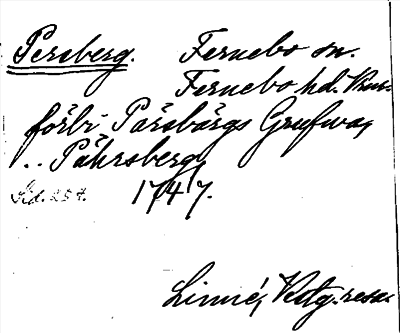 Persberg. Fernebo sn.
Fernebo hd. Vrm.
förbi Pärsbärgs Grufwa,
.. Påhrsberg,
Sid. 254. 1747.
Linné, Vstg. resa.